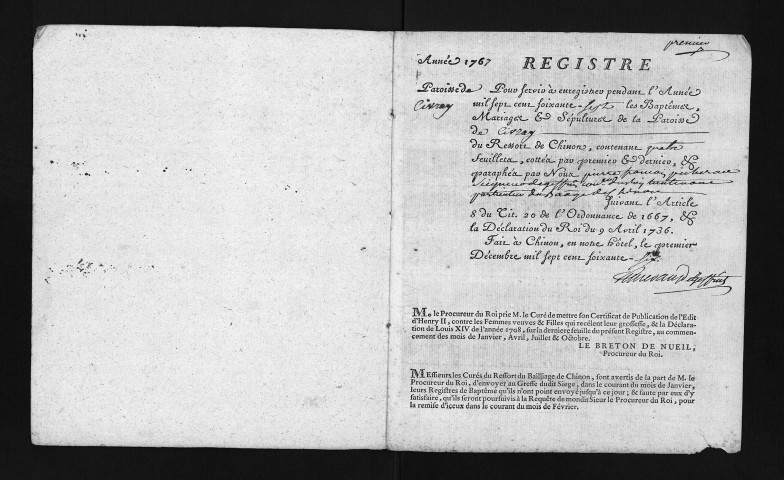 premier
Année 1767 REGISTRE
Paroisse de Civray
Pour servir à enregistrer pendant l'Année
mil sept cent soixante-sept les Baptêmes,
Mariages & Sépultures de la Paroisse
de Civray
du Ressort de Chinon, contenant quatre
feuillets, cottés par premier & dernier, &
paraphés par Nous pierre francois
particulier du Baage de Chinon
suivant l'Article
8 du Tit. 20 de l'Ordonnance de 1667, &
la Déclaration du Roi du 9 Avril 1736.
Fait à Chinon, en notre hôtel, le premier
Décembre mil sept cent soixante-six
M. le Procureur du Roi prie M. le Curé de mettre son Certificat de Publication de l'Edit
d'Henry II, contre les Femmes veuves & Filles qui recèlent leur grossesse, & la Déclara-
tion de Louis XIV de l'année 1708, sur la derniere feuille du présent Registre, au commen-
cement des mois de Janvier, Avril, Juillet & Octobre.
LE BRETON DE NUEIL,
Procureur du Roi.
MEssieurs les Curés du Ressort du Bailliage de Chinon, sont avertis de la part de M. le
Procureur du Roi, d'envoyer au Greffe dudit Siege, dans le courant du mois de Janvier,
leurs Registres de Baptême qu'ils n'ont point envoyé jusqu'à ce jour; & faute par eux d'y
satisfaire, qu'ils seront poursuivis à la Requête de mondit Sieur le Procureur du Roi, pour
la remise d'iceux dans le courant du mois de Février.